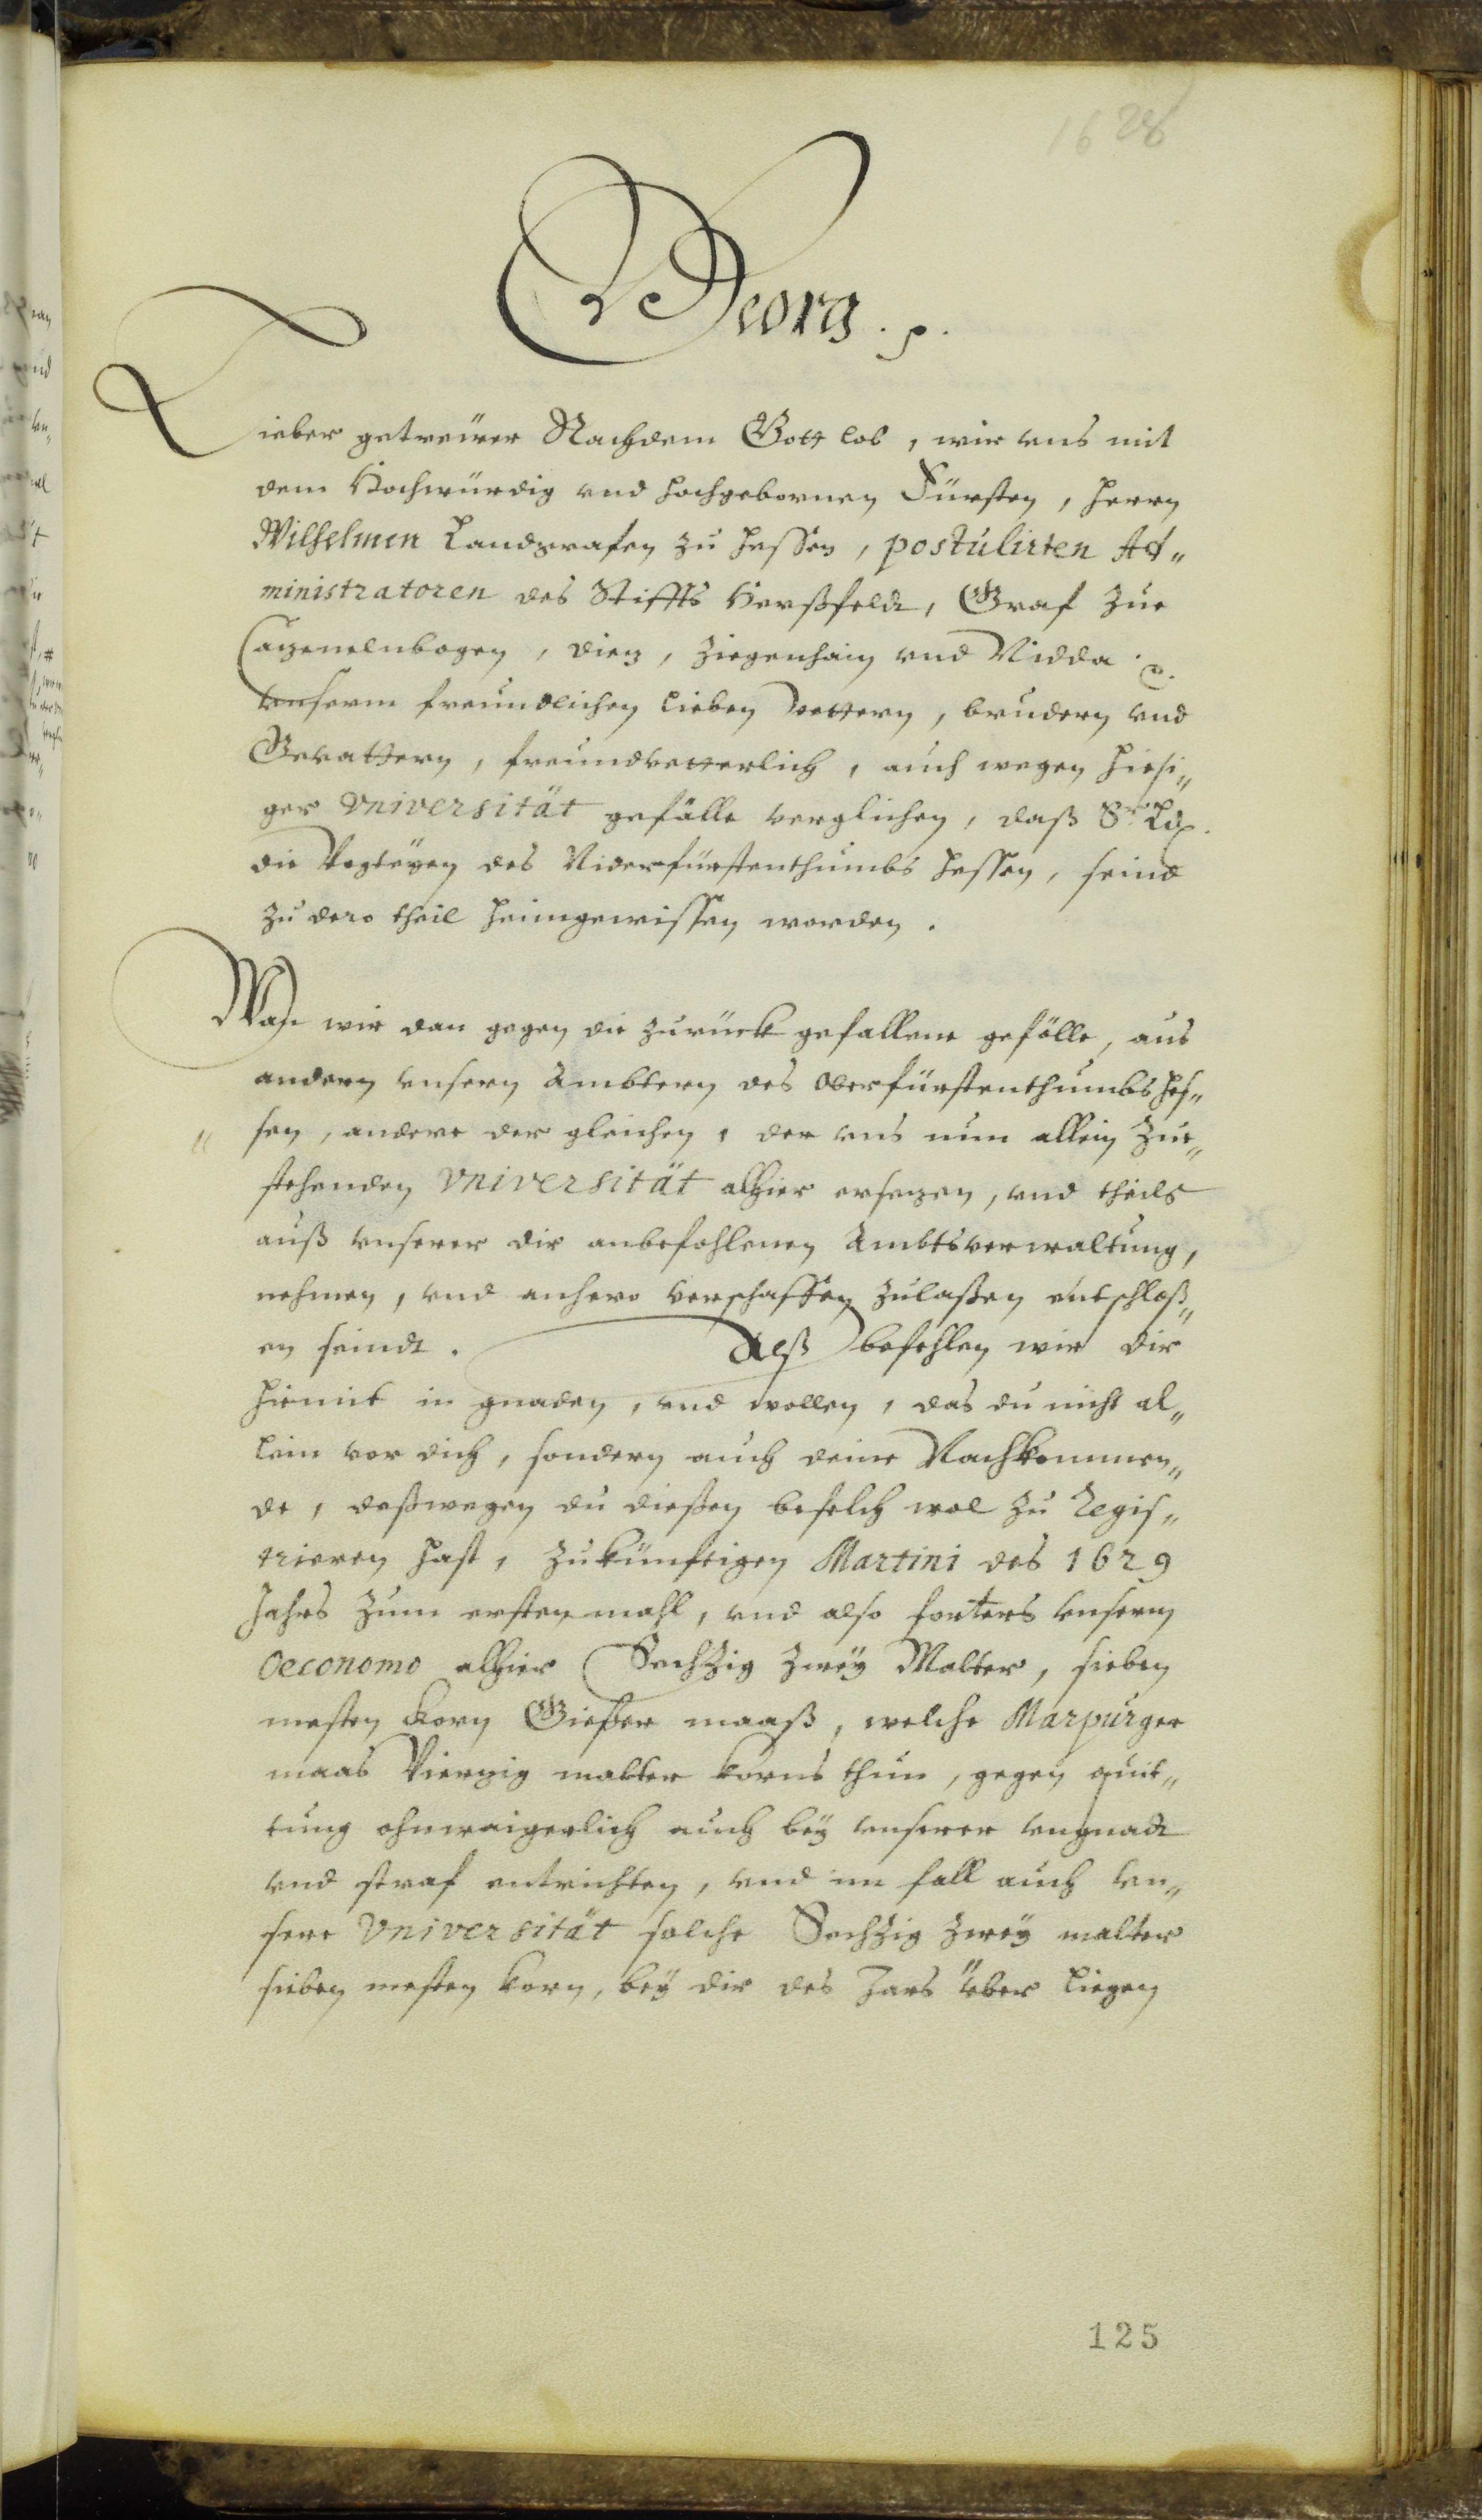 1628
Georg. p.
Lieber getreüer Nachdem Gott lob, wir vns mit
dem Hochwürdig vnd hochgebornen Fürsten, Herrn
Wilhelmen Landgrafen zu Hessen, postulirten Ad„
ministratoren des Stiffts Herßfeldt, Graf zue
Catzenelnbogen, Dietz, Ziegenhain vnd Nidda p.
vnserm freundlichen lieben Vettern, brudern vnd
Gevattern, freundvetterlich, auch wegen hiesi„
ger Vniversität gefälle verglichen, daß Sr. Ld.
die Vogteyen des Niderfürstenthumbs Hessen, seind
zu dero theil heimgewissen worden.
Wan wir dan gegen die zurück gefallene gefölle, aus
andern vnsern Ambtern des Oberfürstenthumbs Hes„
„ sen, andere der gleichen, der vns nun allein zue„
stehenden Vniversität alhier ersetzen, vnd theils
auß vnserer dir anbefohlenen Ambtsverwaltung,
nehmen, vnd anhero verschaffen zulaßen entschloß„
en seindt. Alß befehlen wir dir
hiemit in gnaden, vnd wollen, das du nicht al„
lein vor dich, sondern auch deine Nachkommen„
de, deßwegen du dießen befelch wol zu Regis„
trieren hast, zukünftigen Martini des 1629
Jahrs zum ersten mahl, vnd also forters vnserm
Oeconomo alhier Sechzig zwey Malter, sieben
mesten Korn Gießer maaß, welche Marpurger
maas Viertzig malter korns thun, gegen quit„
tung ohnwaigerlich auch bey vnserer vngnadt
vnd straf entrichten, vnd im fall auch vn„
sere Vniversität solche Sechzig zwey malter
sieben mesten korn, bey dir des Jars über liegen
125